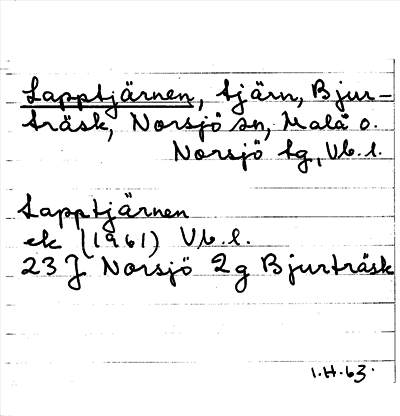 Lapptjärnen, tjärn, Bjur-
träsk, Norsjö sn, Malå o.
Norsjö tg, Vb. l.
Lapptjärnen
ek (1961) Vb. l.
23 J Norsjö 2g Bjurträsk
1.H.63.